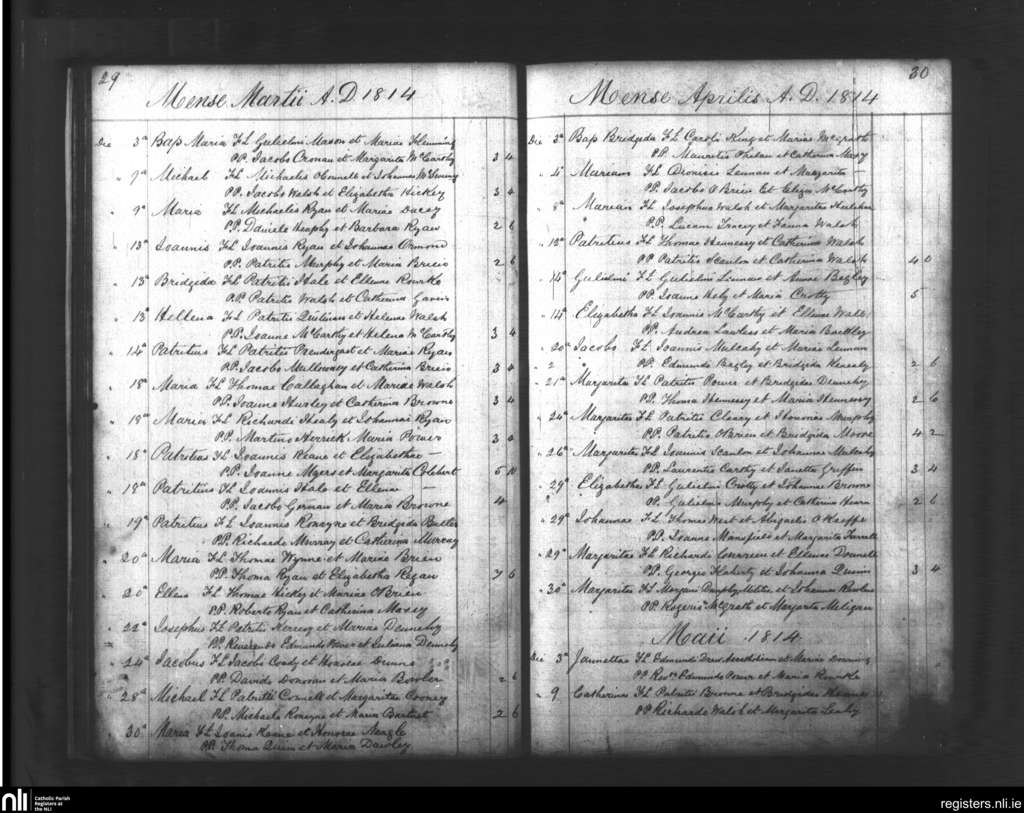 29
Mense Martii A.D 1814
Die 3a Bap Maria FL Gulielmi Mason et Mariae Flemming
PP. Jacobo Cronan et Margarita McCarthy 3 4
" 7a Michael FL Michaelis OConnell et Johannae
PP. Jacobo Walsh et Elizabetha Hickey 3 4
" 9a Maria FL Michaelis Ryan et Mariae Dacey
PP. Daniele Heaphy et Barbara Ryan 2 6
" 13a Joannis FL Joannis Ryan et Johannae Ormond
P.P. Patritio Murphy et Maria Breeio 2 6
" 13a Bridgeda FL Patritii Hale et Ellenae Rourke
PP. Patritio Walsh et Catherina
" 13a Hellena FL Patritii Quilinan et Helenae Walsh
P.P. Joanne McCarthy et Helena McCarthy 3 4
" 14a Patritius FL Patritii Prendergast et Mariae Ryan
PP. Jacobo Mullowney et Catherina Breeio 3 4
" 18a Maria FL Thomae Callaghan et Mariae Walsh
P.P. Joanne Hurley et Catherina Browne 3 4
" 18a Maria FL Richardi Healy et Johannae Ryan
P.P. Martino Herrick Maria Power 3 4
" 18a Patritius FL Joannis Keane et Elizabethae —
P.P. Joanne Myers et Margarita Colbert 5 10
" 18a Patritius FL Joannis Hale et Ellena —
P.P. Jacobo Gorman et Maria Browne 4
" 19a Patritius FL Joannis Ronayne et Bridgeda Butler
PP. Richardo Murray et Catherina Murray
" 20a Maria FL Thomae Wynne et Mariae Brien
PP. Thoma Ryan et Elizabetha Regan 7 6
" 20a Ellena FL Thomae Hickey et Mariae OBrien
PP. Roberto Ryan et Catherina Massey
" 22a Josephus FL Patritii et Mariae Dennehy
PP. Reverendo Edmundo et Juliana Dennehy
" 24a Jacobus FL Jacobi Coady et Honorae Dunne
PP. Davide Donovan et Maria Bowler 2 6
" 28a Michael FL Patritii Connell et Margaritae Cooney
P.P. Michaele Ronayne et Maria Bartnet 2 6
" 30a Maria FL Joanis Keane et Honorae Neagle
PP. Thoma Quin et Maria Dawley
30
Mense Aprilis A.D. 1814
Die 3a Bap Bridgeda FL Caroli King et Mariae McGrath
PP. Mauritio Phelan et Catherina Massy
" 4a Mariam FL Dionisii Lennan et Margarita —
PP. Jacobo OBrien Et Eliza McCarthy
" 8a Marian FL Josephus Walsh et Margaritae
P.P. Lucam Tracey et Hanna Walsh
" 12a Patritius FL Thomae Hennessy et Catherina Walsh
PP Patritio Scanlon et Catherina Walsh 4 0
" 14a Gulielmi FL Gulielmi Linnane et Annae Bagley
PP. Joanne Hely et Maria Crotty 5
" 14a Elizabetha FL Joannis McCarthy et Ellenae Wall
PP. Andrea Lawless et Maria Buckley
" 20a Jacobo FL Joannis Mulcahy et Mariae Lennan
" 2 " PP. Edmundo Bagley et Bridgeda Kenealy 2 6
" 21a Margarita FL Patritii Power et Bridgedae Dennehy
PP. Thoma Hennessy et Maria Hennessy 2 6
" 24a Margarita FL Patritii Cleary et Honorae Murphy
PP. Patritio OBrien et Bridgeda Moore 4 2
" 26a Margarita FL Joannis Scanlon et Johannae Mulcahy
PP. Laurentio Carthy et Janetta Griffin 3 4
" 29a Elizabetha FL Gulielmi Crotty et Johannae Browne
" PP. Gulielmo Murphy et Catherina Hann 2 6
" 29a Johannae FL Thomae West et Abigaelis OKeeffe
P.P. Joanne Mansfield et Margarita
" 29a Margarita FL Richardi et Ellenae Donnell
PP. Georgio Flaherty et Johanna Dunn 3 4
" 30a Margarita FL Morgani et Johannae
PP. Rogerio McGrath et Margarita Meligan
Maii 1814
Die 3a Jannettae FL Edmundi Drew et Mariae
PP Revdo Edmundo Power et Maria Rourke
" 9 Catherina FL Patritii Browne et Bridgidae
PP Richardo Walsh et Margarita Leahy
nli
Catholic Parish
Registers at
the NLI
registers.nli.ie